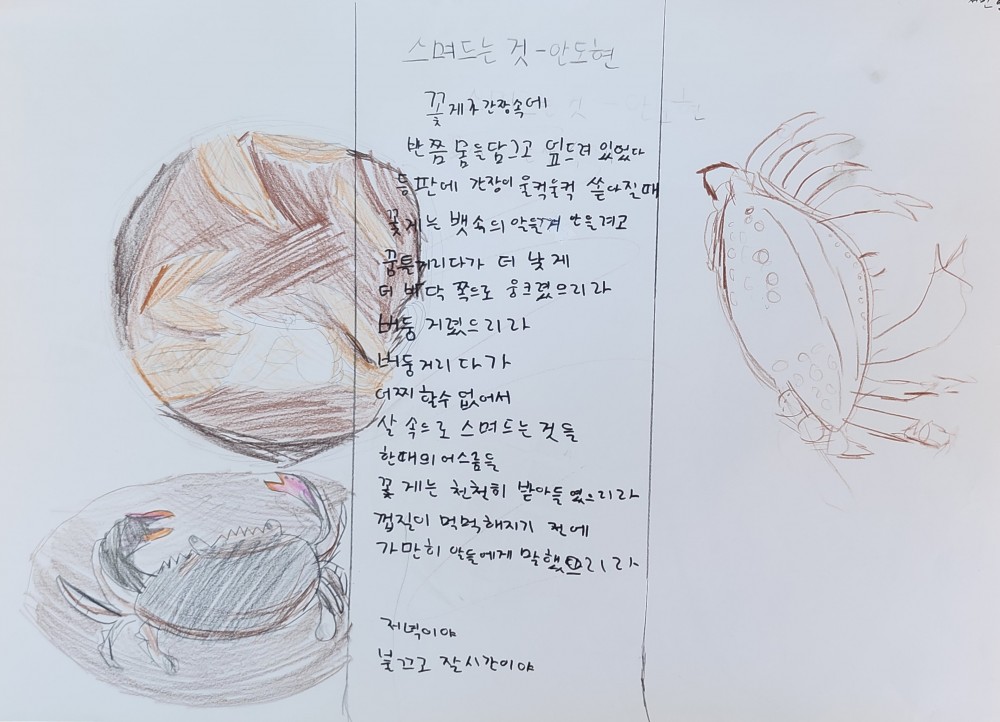 스며드는 것 - 안도현
꽃게가 간장속에
반쯤 몸을 담그고 엎드려 있었다
등판에 간장이 울컥울컥 쏟아질때
꽃게는 뱃속의 알을 껴안을려고
꿈틀거리다가 더 낮게
더 바닥 쪽으로 웅크렸으리라
버둥거렸으리라
버둥거리다가
어찌할수 없어서
살 속으로 스며드는 것들
한때의 어스름들
꽃게는 천천히 받아들였으리라
껍질이 먹먹해지기 전에
가만히 알들에게 말했으리라
저녁이야
불끄고 잘시간이야